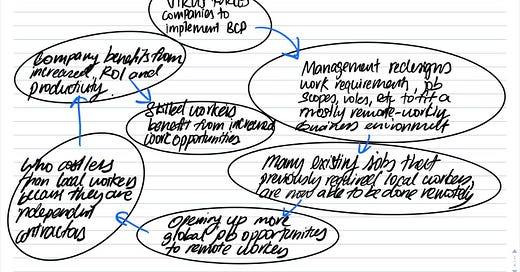 Virus forces
companies to
implement BCP
Management redesigns
work requirements, job
scopes, roles, etc to fit a
mostly remote-working
business environment
Many existing jobs that
previously required local workers,
are not able to be done remotely
Opening up more
global job opportunities
to remote workers
who cost less
than local workers
because they are
independent
contractors
Company benefits from
increased ROI and
productivity.
Skilled workers
benefit from increased
work opportunities